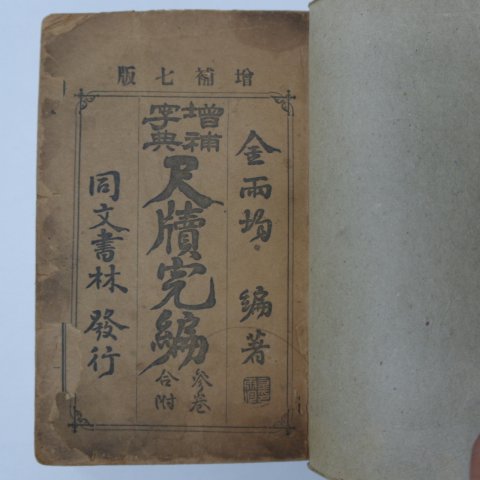 增補七版
金雨均 編著
增補
字典
尺牘完編
參卷
合附
同文書林 發行